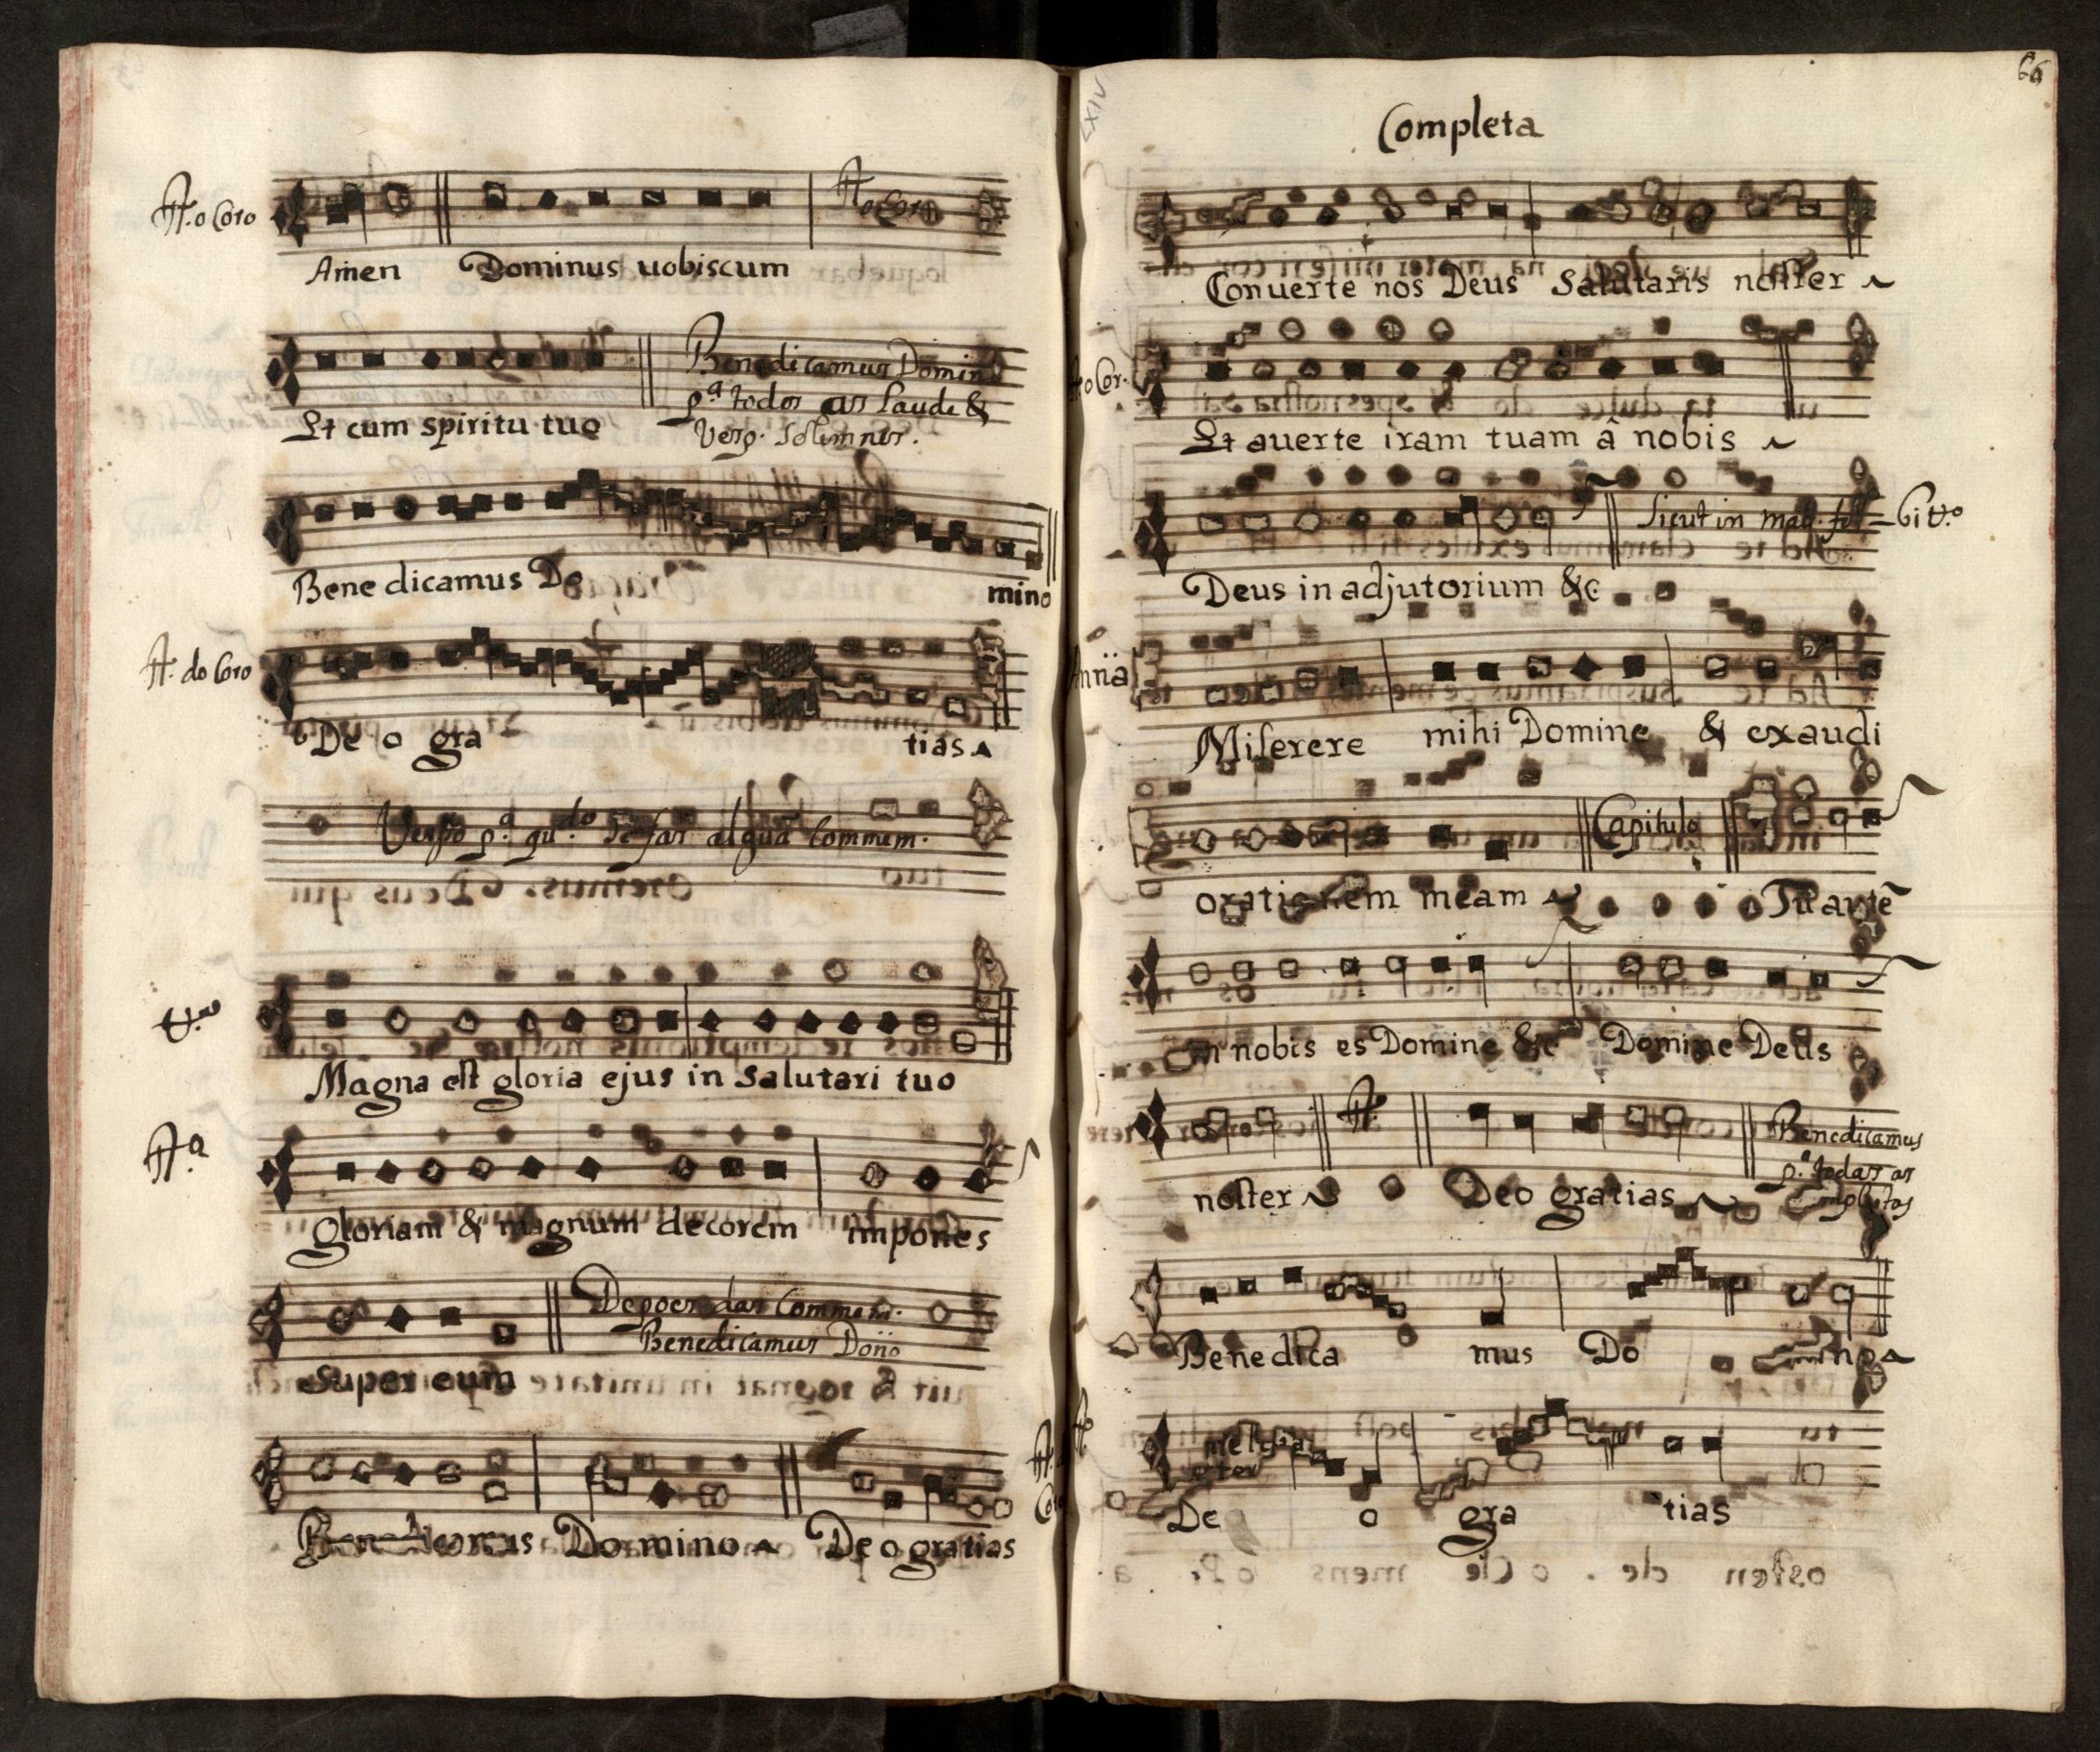 R. o Coro
R. o Coro
Amen Dominus uobiscum
Benedicamus Domino
p.ª todos as Laude &
Et cum spiritu tuo Vesp. Solemnes.
Benedicamus Do mino
R. do Coro
Deo gra tias
Verso p.ª qu.do se faz algua Commem.
Magna est gloria ejus in salutari tuo
R.ª
Gloriam & magnum decorem impones
Depoes das Commem.
Benedicamus Dono
super eum
R. Coro
Benedicamus Domino Deo gratias
64
LXIV
Completa
Conuerte nos Deus Salutaris noster
R. o Cor.
Et auerte iram tuam â nobis
Sicut in
Deus in adjutorium &c
Anña
Miserere mihi Domine & exaudi
Capitulo
orationem meam Tu autẽ
in nobis es Domine &c Domine Deus
R.
Benedicamus
p.ª todas as
noster Deo gratias
Benedica mus Do mino
R.
De o gra tias